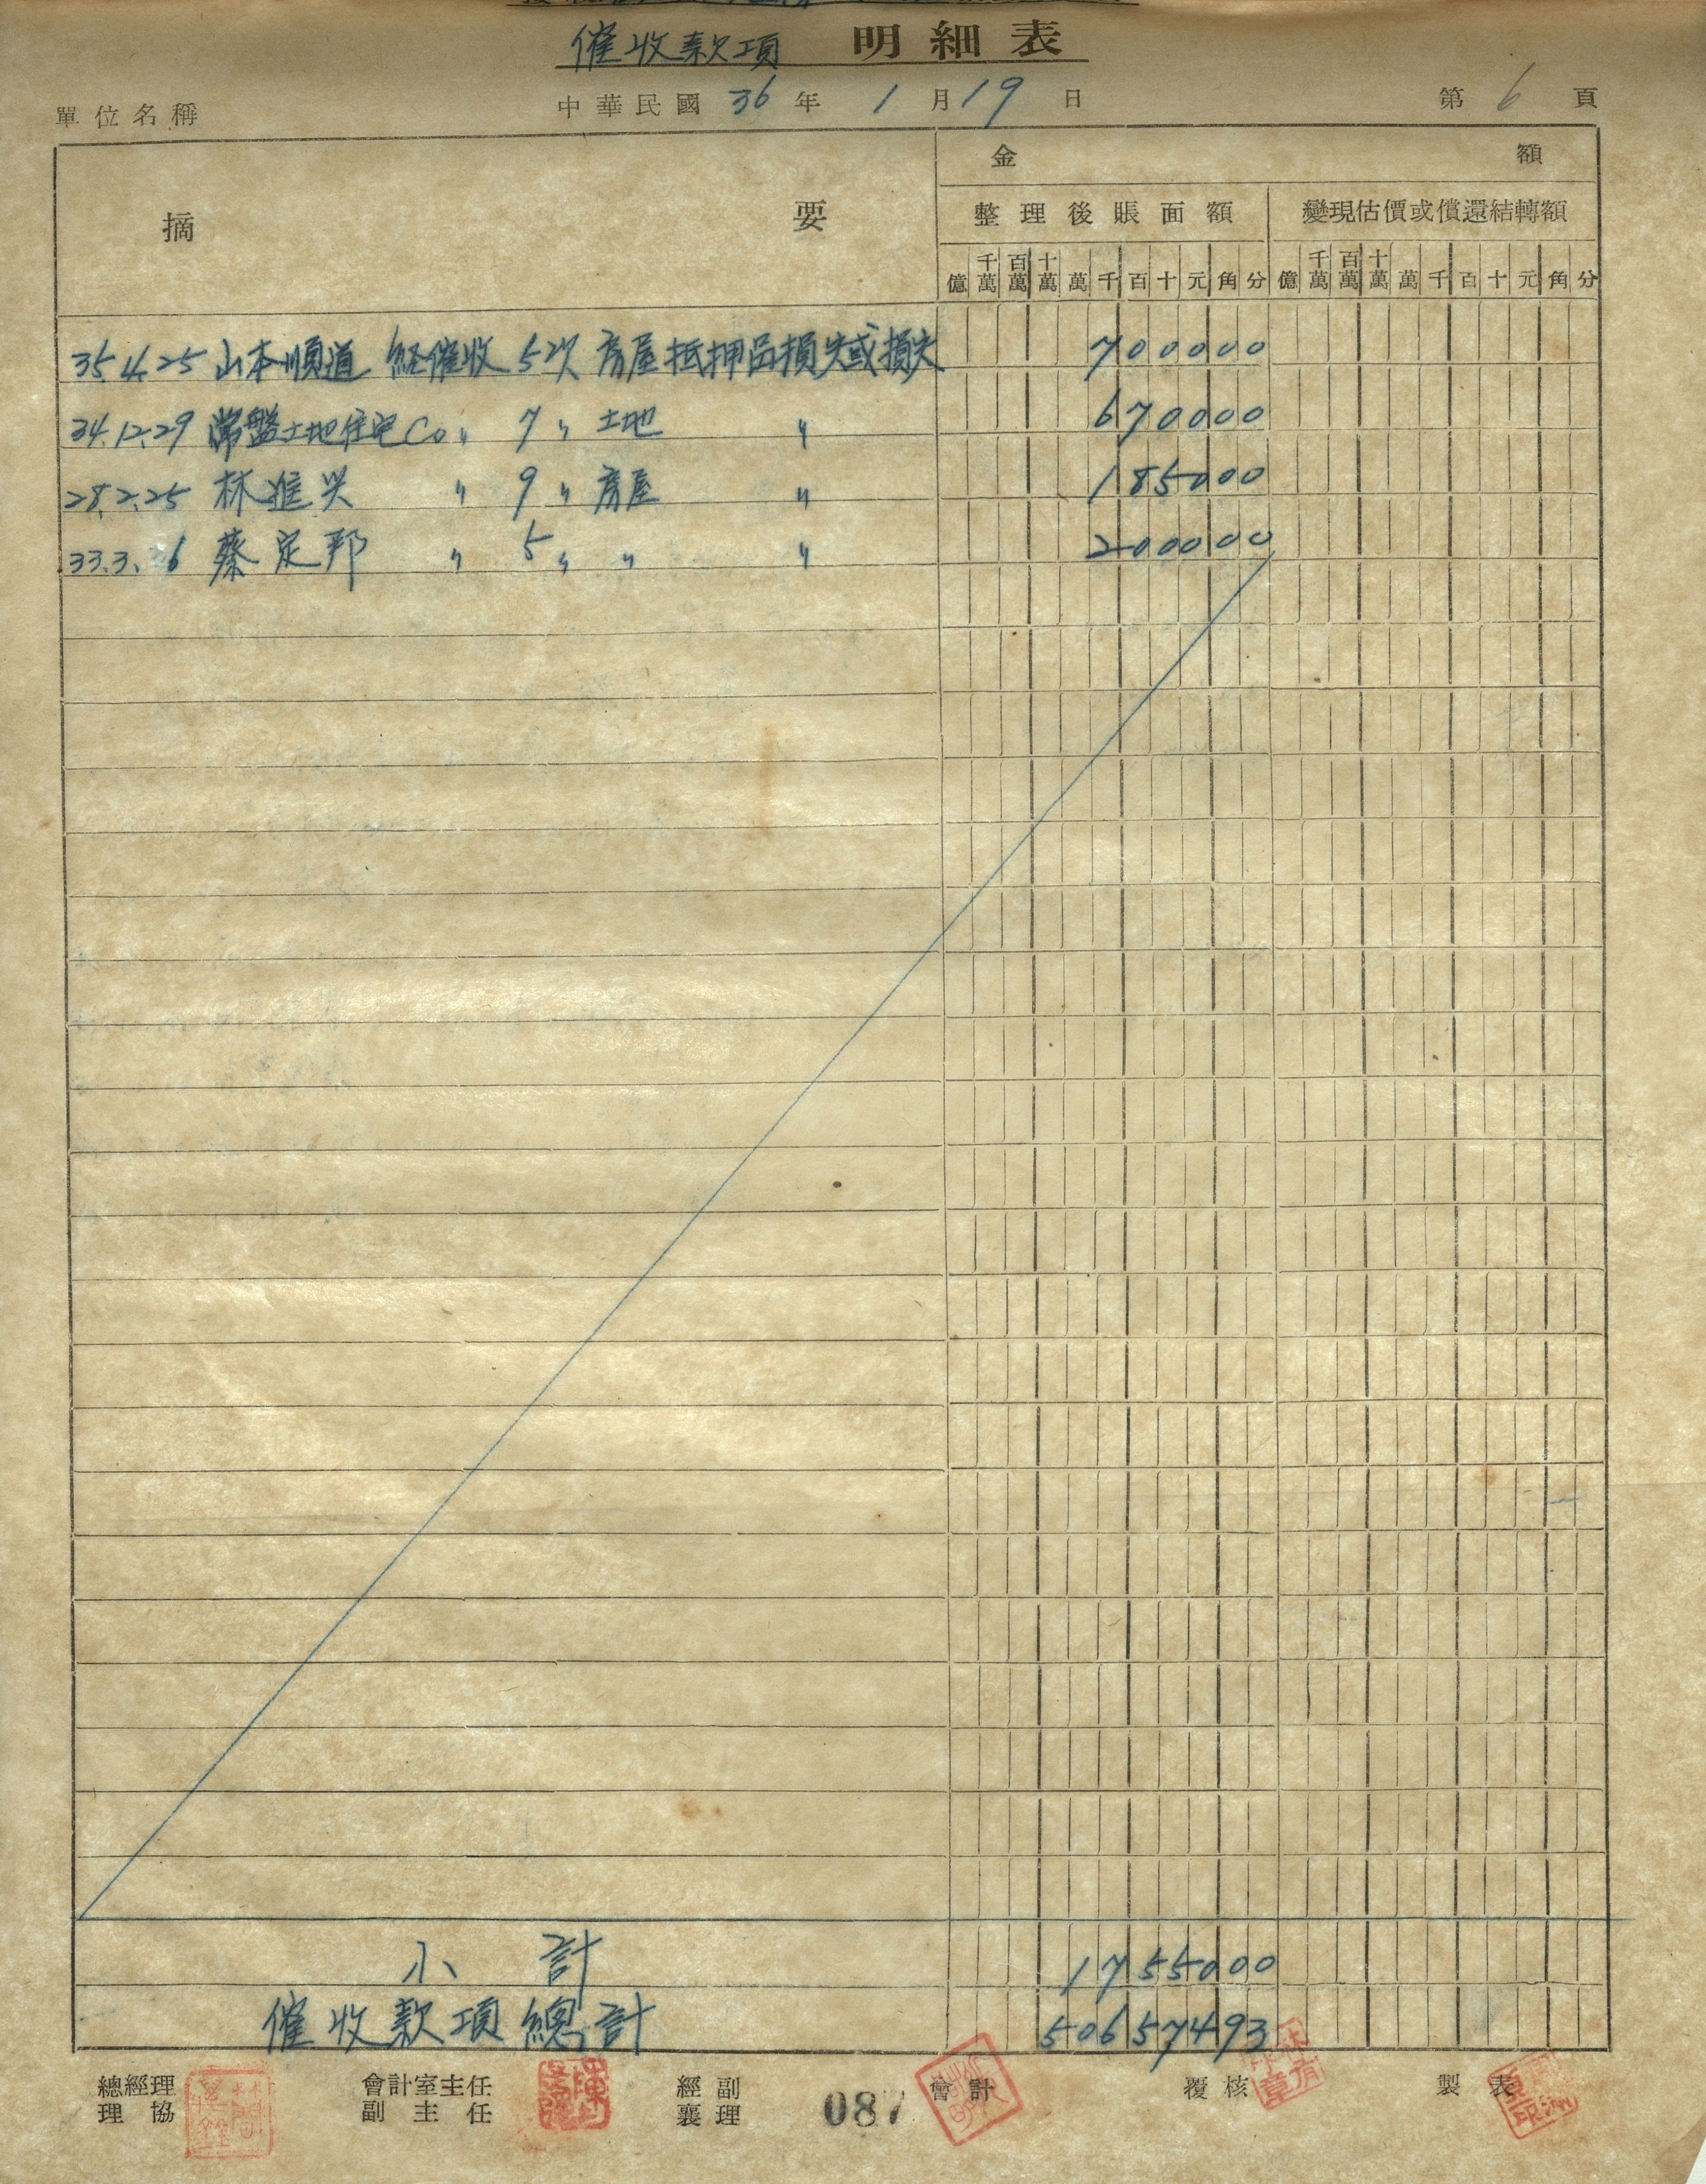 催收款項 明細表
單位名稱 中華民國 36 年 1 月 19 日 第 6 頁
摘要 金額
整理後賬面額 變現估價或償還結轉額
億 千萬 百萬 十萬 萬 千 百 十 元 角 分 億 千萬 百萬 十萬 萬 千 百 十 元 角 分
35.4.25 山本順道 経催收 5次 房屋抵押品損失或損失 700000
34.12.29 常盤土地住宅Co 〃 7 〃 土地 〃 670000
28.2.25 林進興 〃 9 〃 房屋 〃 185000
33.3.6 蔡定邦 〃 5 〃 〃 〃 200000
小計 1755000
催收款項總計 50657493
總經理 會計室主任 經副 會計 覆核 製表
理協 副主任 襄理 087